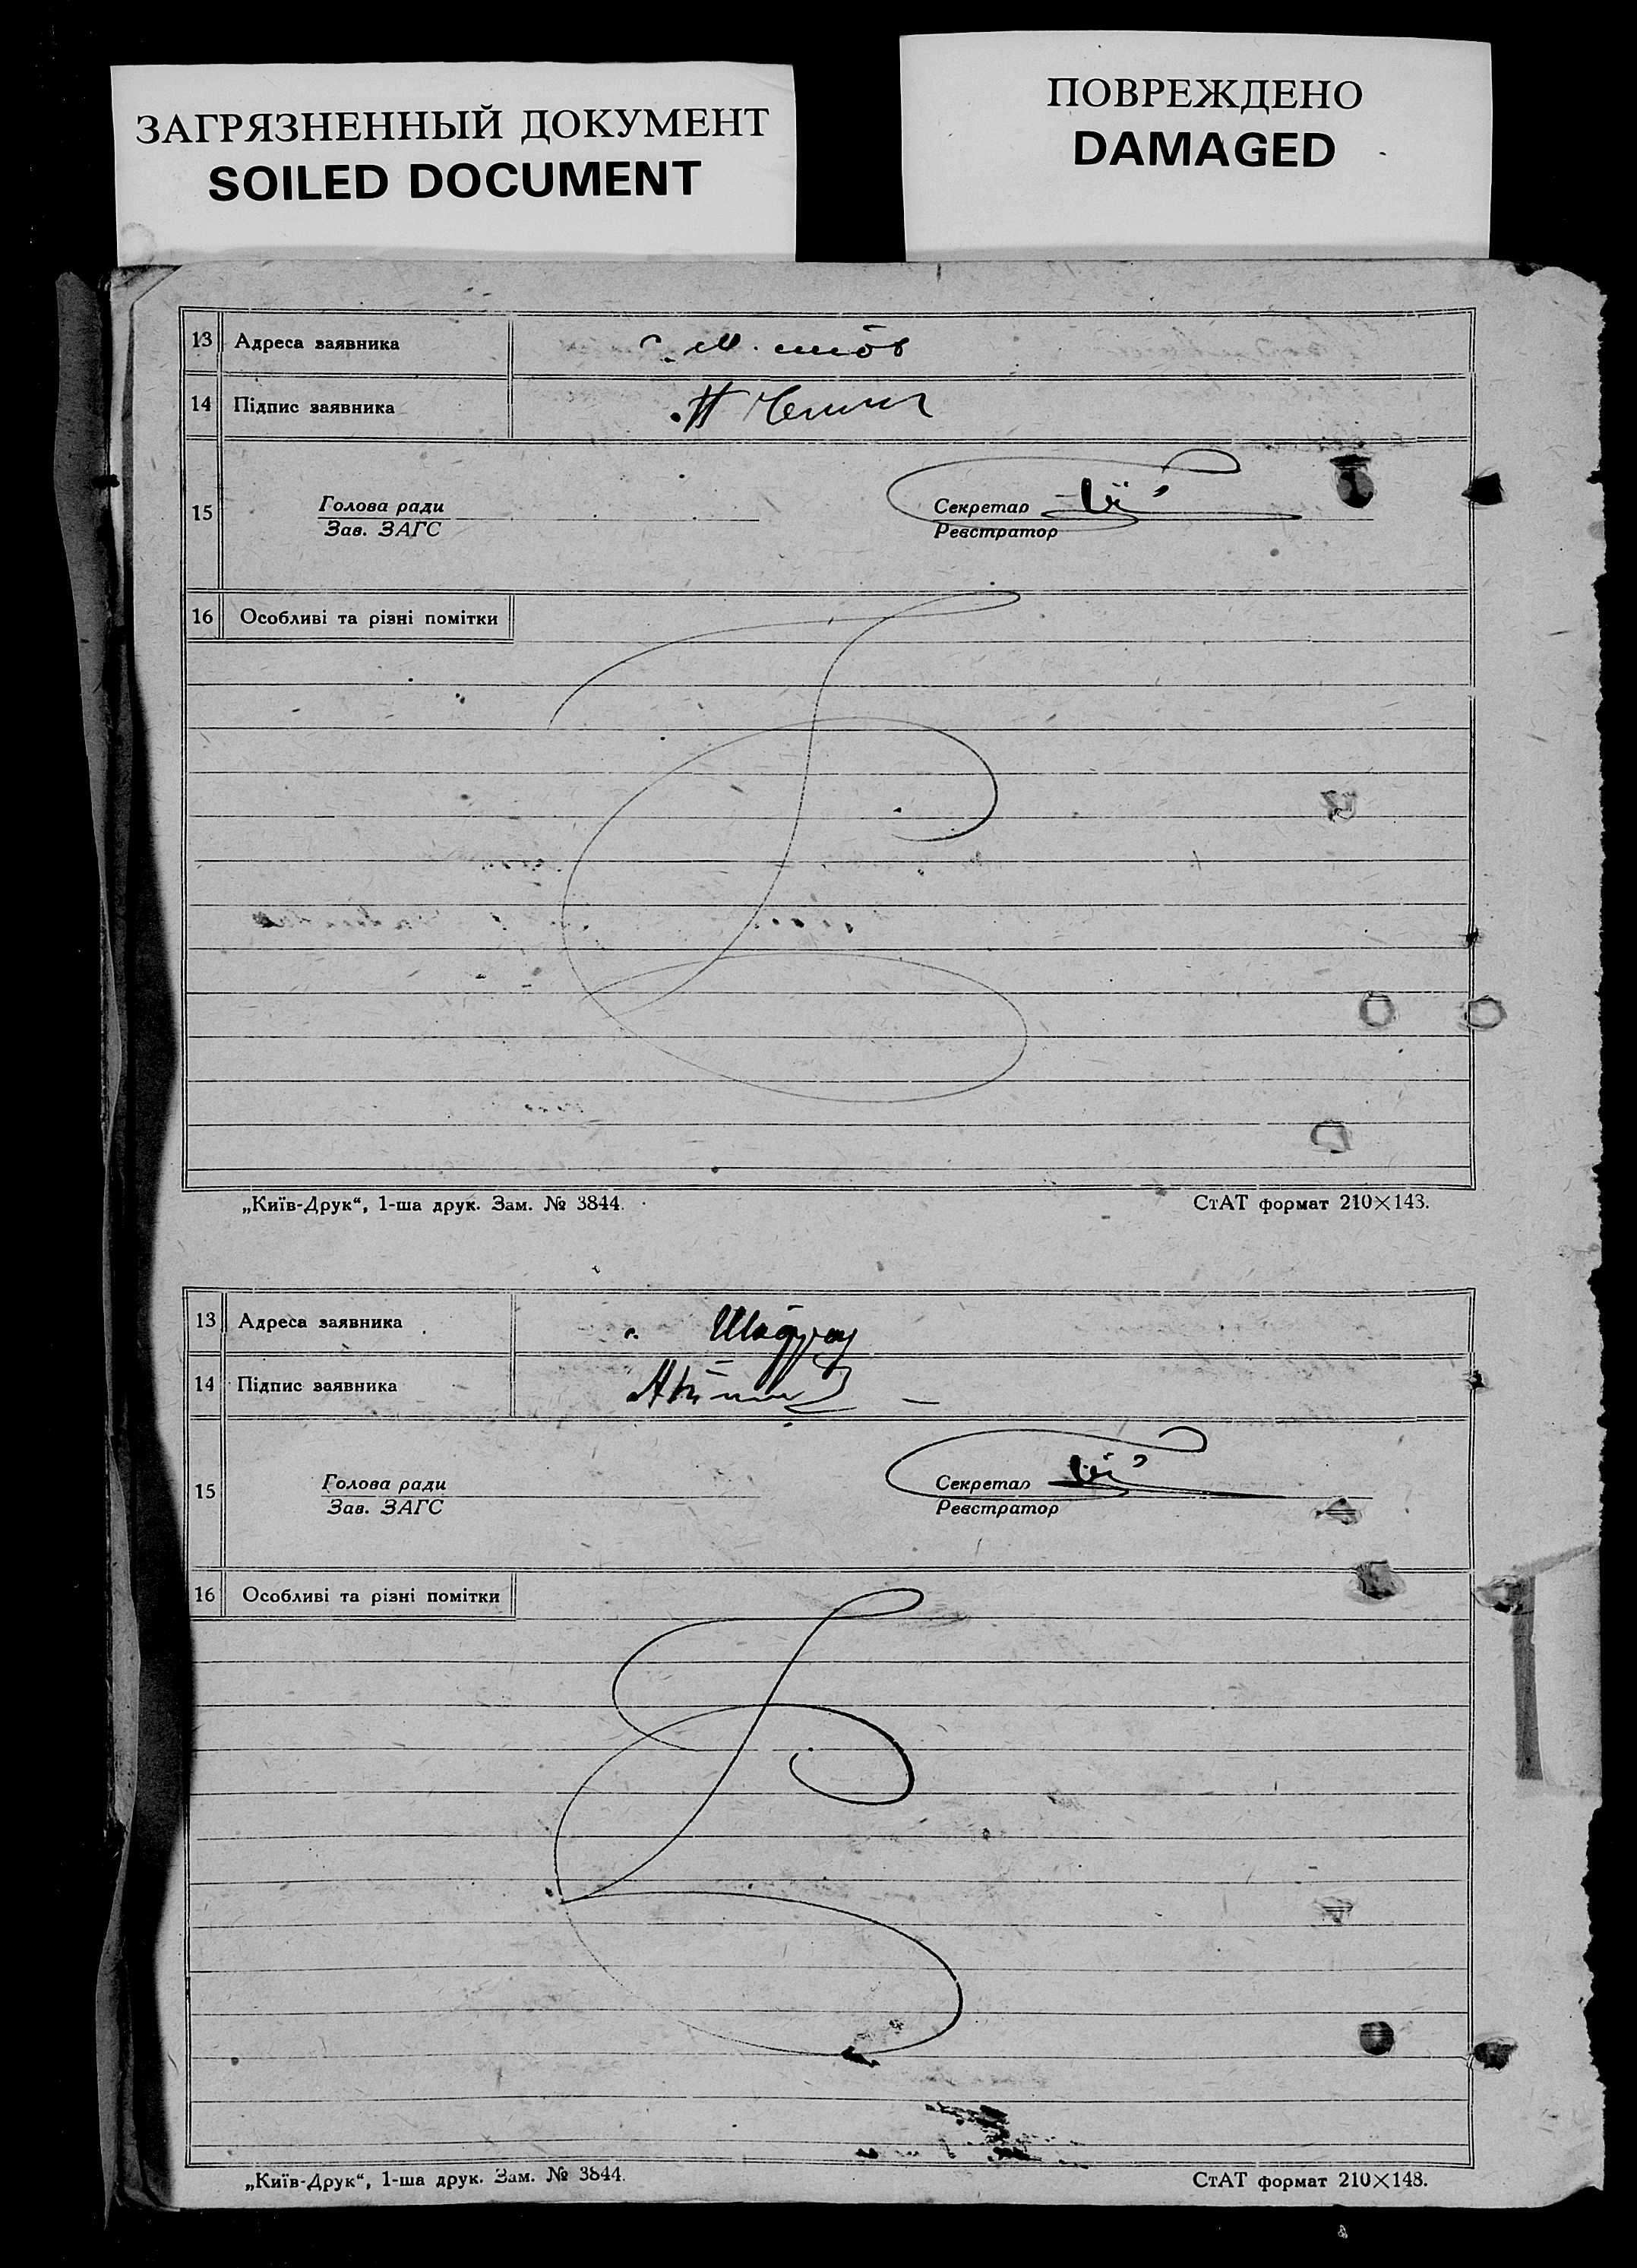 ЗАГРЯЗНЕННЫЙ ДОКУМЕНТ
SOILED DOCUMENT
ПОВРЕЖДЕНО
DAMAGED
13 Адреса заявника с.
14 Підпис заявника
15 Голова ради Секретар
Зав. ЗАГС Реєстратор
16 Особливі та різні помітки
„Київ-Друк“, 1-ша друк. Зам. № 3844. СтАТ формат 210×143.
13 Адреса заявника с.
14 Підпис заявника
15 Голова ради Секретар
Зав. ЗАГС Реєстратор
16 Особливі та різні помітки
„Київ-Друк“, 1-ша друк. Зам. № 3844. СтАТ формат 210×148.